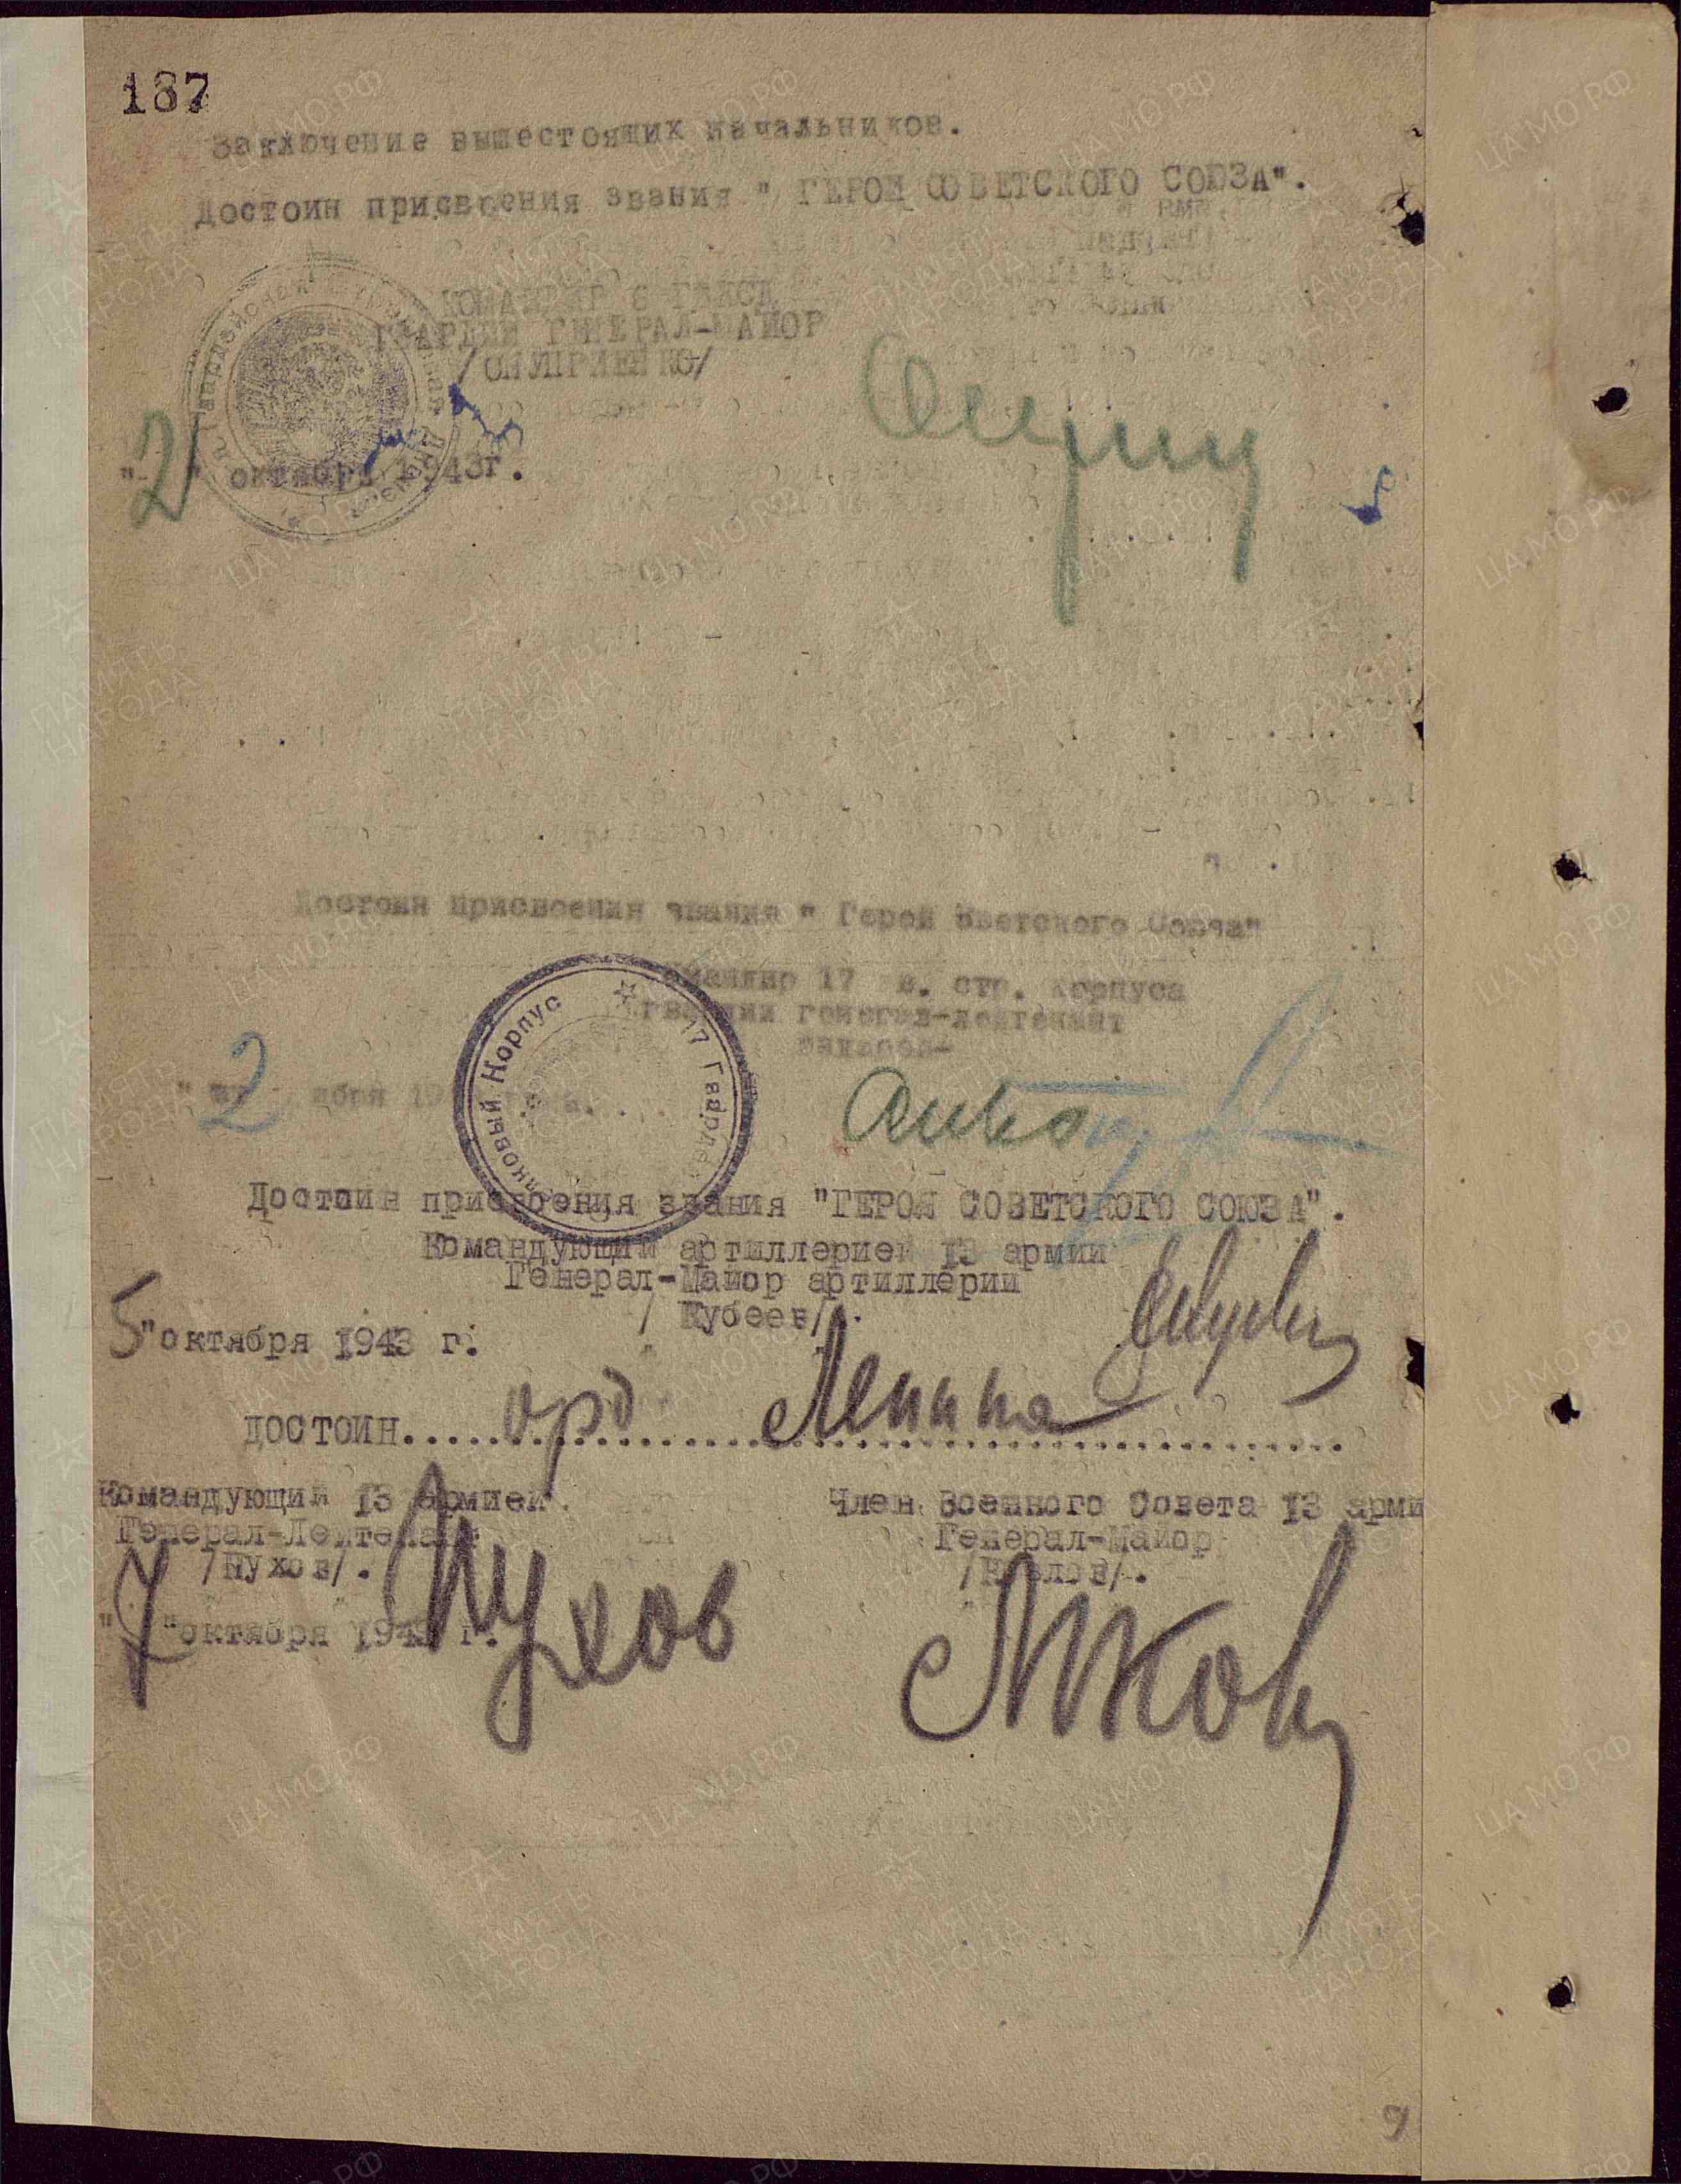 187
Заключение вышестоящих начальников.
Достоин присвоения звания " ГЕРОЯ СОВЕТСКОГО СОЮЗА".
КОМАНДИР 6 ГВКСД
ГВАРДИИ ГЕНЕРАЛ-МАЙОР
/ОНУПРИЕНКО/
"2" октября 1943г.
Достоин присвоения звания " Герой Советского Союза"
Командир 17 гв. стр. корпуса
гвардии генерал-лейтенант
2
17 Гвард. Стрелковый Корпус
Достоин присвоения звания "ГЕРОЯ СОВЕТСКОГО СОЮЗА".
Командующий артиллерией 13 армии
Генерал-Майор артиллерии
/ Кубеев/.
5"октября 1943 г.
ДОСТОИН..... орд Ленина
Командующий 13 армией. Член Военного Совета 13 арми
Генерал-Лейтенант Генерал-Майор
/Пухов/. /Козлов/.
Пухов
"7"октября 1943 г.
9
ЦА МО РФ
ПАМЯТЬ НАРОДА